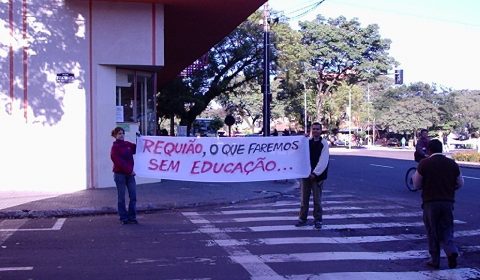 REQUIÃO, O QUE FAREMOS
SEM EDUCAÇÃO...